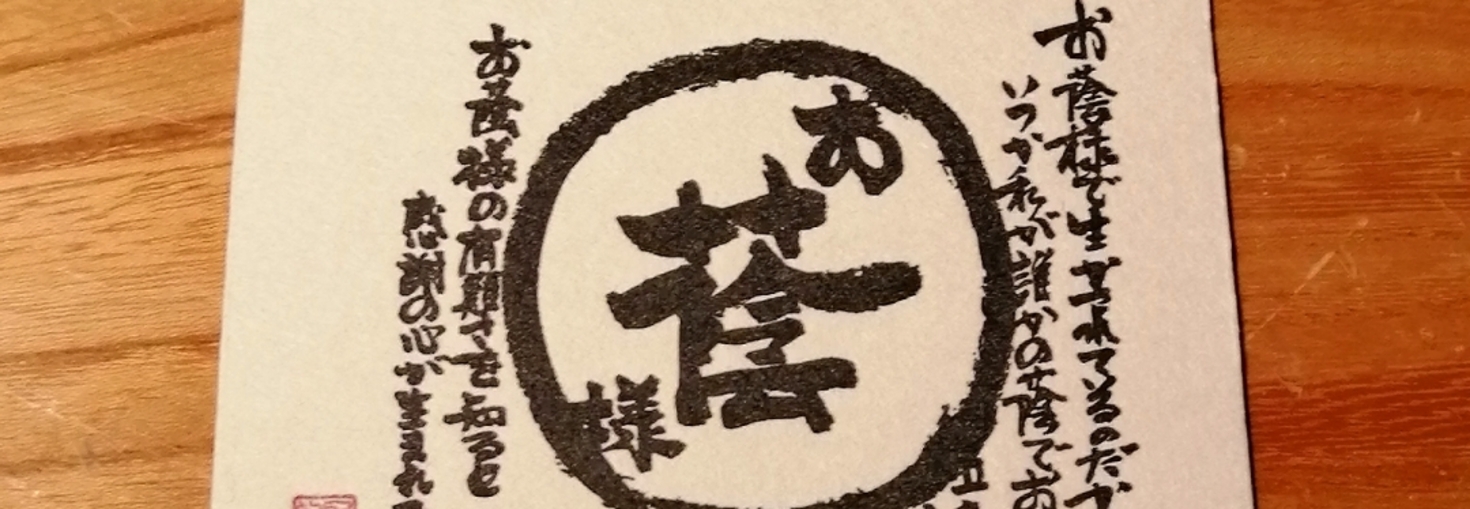 お蔭様で生かされてるのだか
いつか私が誰かの蔭でお
お
蔭
様
お蔭様の有難さを知ると
感謝の心が生まれ